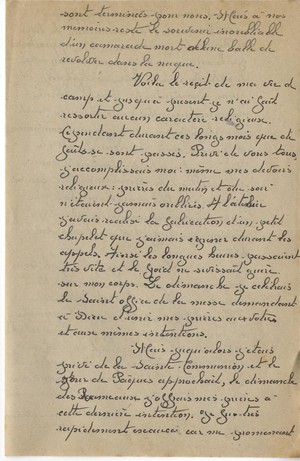 sont terminés pour nous. Mais à nos
mémoires reste le souvenir inoubliable
d'un camarade mort d'une balle de
revolver dans la nuque.
Voilà le récit de ma vie de
camp et jusqu'à présent je n'ai fait
ressortir aucun caractère religieux.
Cependant durant ces longs mois que de
faits se sont passés. Privé de vous tous
j'accomplissais moi-même mes devoirs
religieux: prières du matin et du soir
n'étaient jamais oubliées. A l'atelier
j'avais réalisé la fabrication d'un petit
chapelet que j'aimais égrener durant les
appels. Ainsi les longues heures passaient
très vite et le froid ne sévissait guère
sur mon corps. Le dimanche je
le Saint office de la messe demandant
à Dieu d'unir mes prières aux vôtres
et aux mêmes intentions.
Mais jusqu'alors j'étais
privé de la Sainte Communion et le
jour de Pâques approchait, le dimanche
des Rameaux j'offrais mes prières à
cette dernière intention. Je fus très
rapidement exaucé car me promenant